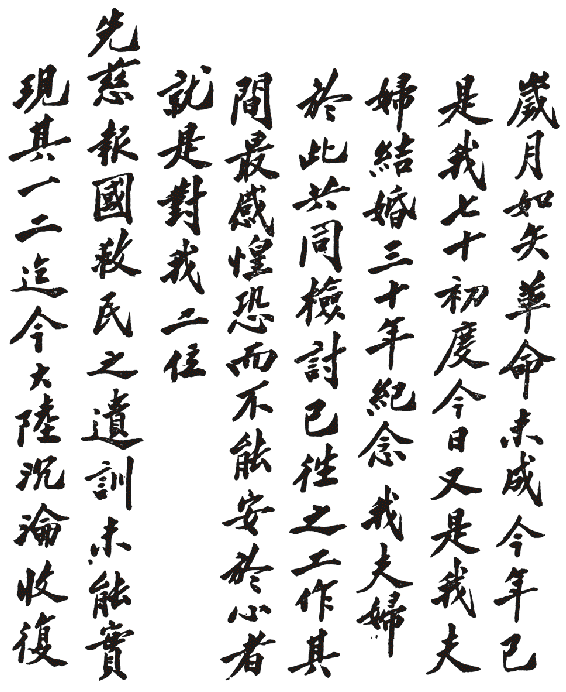 歲月如矢革命未成今年已
是我七十初度今日又是我夫
婦結婚三十年紀念我夫婦
於此共同檢討已往之工作其
間最感惶恐而不能安於心者
就是對我二位
先慈報國救民之遺訓未能實
現其一二迄今大陸沉淪收復